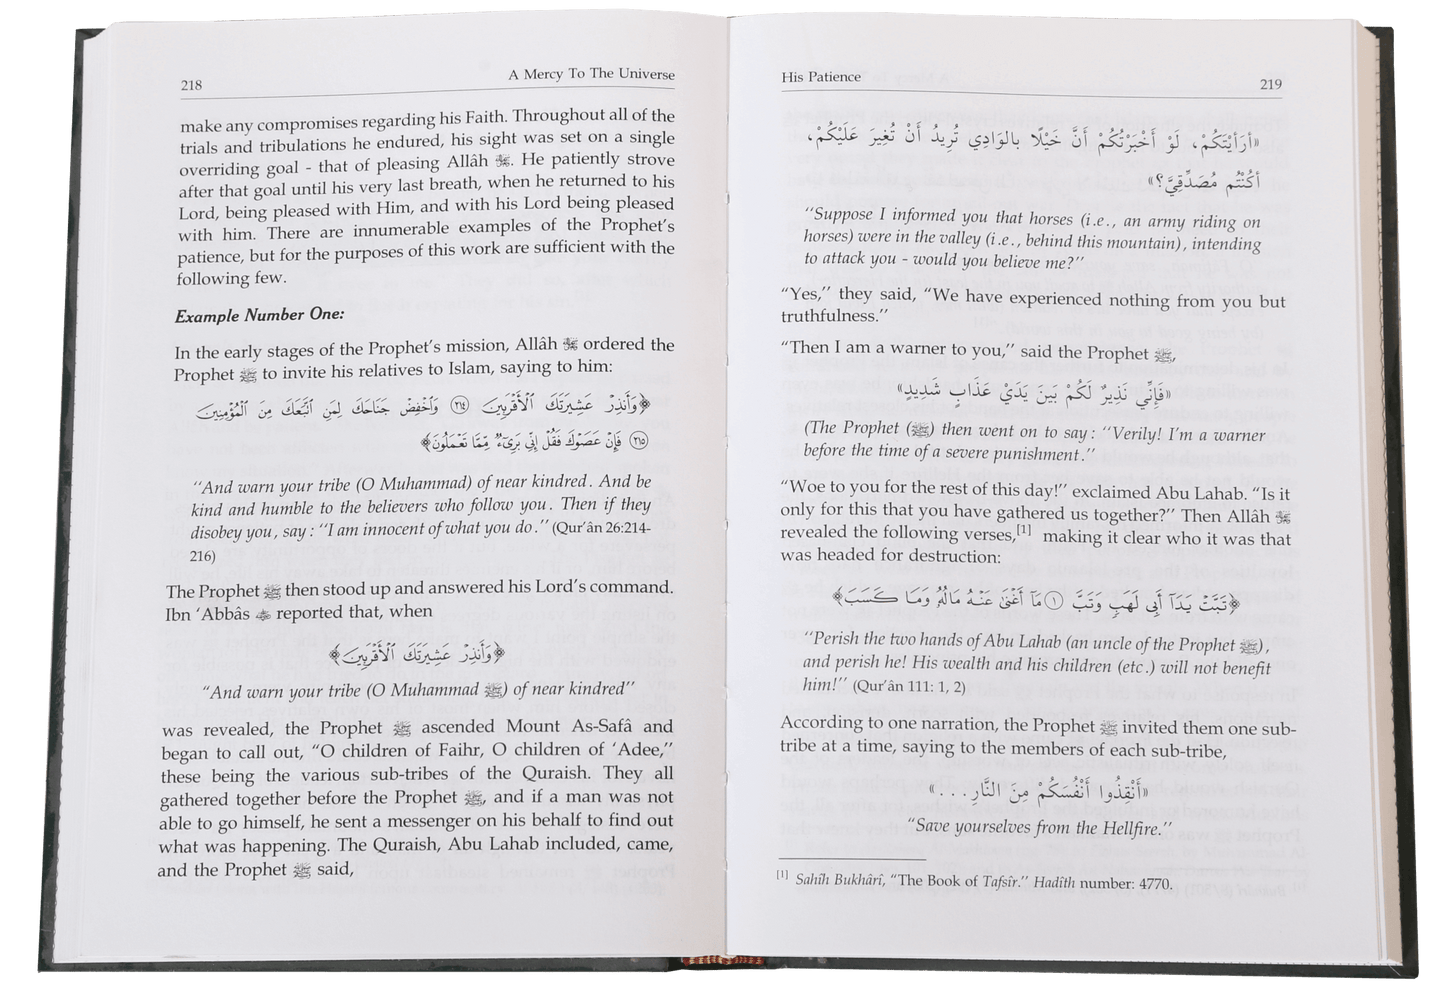 218
A Mercy To The Universe
make any compromises regarding his Faith. Throughout all of the
trials and tribulations he endured, his sight was set on a single
overriding goal - that of pleasing Allâh ﷻ. He patiently strove
after that goal until his very last breath, when he returned to his
Lord, being pleased with Him, and with his Lord being pleased
with him. There are innumerable examples of the Prophet’s
patience, but for the purposes of this work are sufficient with the
following few.
Example Number One:
In the early stages of the Prophet’s mission, Allâh ﷻ ordered the
Prophet ﷺ to invite his relatives to Islam, saying to him:
﴿وَأَنذِرْ عَشِيرَتَكَ ٱلْأَقْرَبِينَ ﴿٢١٤﴾ وَٱخْفِضْ جَنَاحَكَ لِمَنِ ٱتَّبَعَكَ مِنَ ٱلْمُؤْمِنِينَ
﴿٢١٥﴾ فَإِنْ عَصَوْكَ فَقُلْ إِنِّي بَرِيٓءٌ مِّمَّا تَعْمَلُونَ﴾
“And warn your tribe (O Muhammad) of near kindred. And be
kind and humble to the believers who follow you. Then if they
disobey you, say: “I am innocent of what you do.” (Qur’ân 26:214-
216)
The Prophet ﷺ then stood up and answered his Lord’s command.
Ibn ‘Abbâs reported that, when
﴿وَأَنذِرْ عَشِيرَتَكَ ٱلْأَقْرَبِينَ﴾
“And warn your tribe (O Muhammad ﷺ) of near kindred”
was revealed, the Prophet ﷺ ascended Mount As-Safâ and
began to call out, “O children of Faihr, O children of ‘Adee,”
these being the various sub-tribes of the Quraish. They all
gathered together before the Prophet ﷺ, and if a man was not
able to go himself, he sent a messenger on his behalf to find out
what was happening. The Quraish, Abu Lahab included, came,
and the Prophet ﷺ said,
His Patience
219
«أَرَأَيْتَكُمْ، لَوْ أَخْبَرْتُكُمْ أَنَّ خَيْلًا بالوَادِي تُرِيدُ أَنْ تُغِيرَ عَلَيْكُمْ،
أَكُنْتُم مُصَدِّقِيَّ؟»
“Suppose I informed you that horses (i.e., an army riding on
horses) were in the valley (i.e., behind this mountain), intending
to attack you - would you believe me?”
“Yes,” they said, “We have experienced nothing from you but
truthfulness.”
“Then I am a warner to you,” said the Prophet ﷺ,
«فَإِنِّي نَذِيرٌ لَكُمْ بَينَ يَدَيْ عَذَابٍ شَدِيدٍ»
(The Prophet (ﷺ) then went on to say: “Verily! I’m a warner
before the time of a severe punishment.”
“Woe to you for the rest of this day!” exclaimed Abu Lahab. “Is it
only for this that you have gathered us together?” Then Allâh ﷻ
revealed the following verses,[1] making it clear who it was that
was headed for destruction:
﴿تَبَّتْ يَدَآ أَبِي لَهَبٍ وَتَبَّ ﴿١﴾ مَآ أَغْنَىٰ عَنْهُ مَالُهُۥ وَمَا كَسَبَ﴾
“Perish the two hands of Abu Lahab (an uncle of the Prophet ﷺ),
and perish he! His wealth and his children (etc.) will not benefit
him!” (Qur’ân 111: 1, 2)
According to one narration, the Prophet ﷺ invited them one sub-
tribe at a time, saying to the members of each sub-tribe,
«أَنْقِذُوا أَنْفُسَكُمْ مِنَ النَّارِ. . . .»
“Save yourselves from the Hellfire.”
[1] Sahîh Bukhârî, “The Book of Tafsîr.” Hadîth number: 4770.